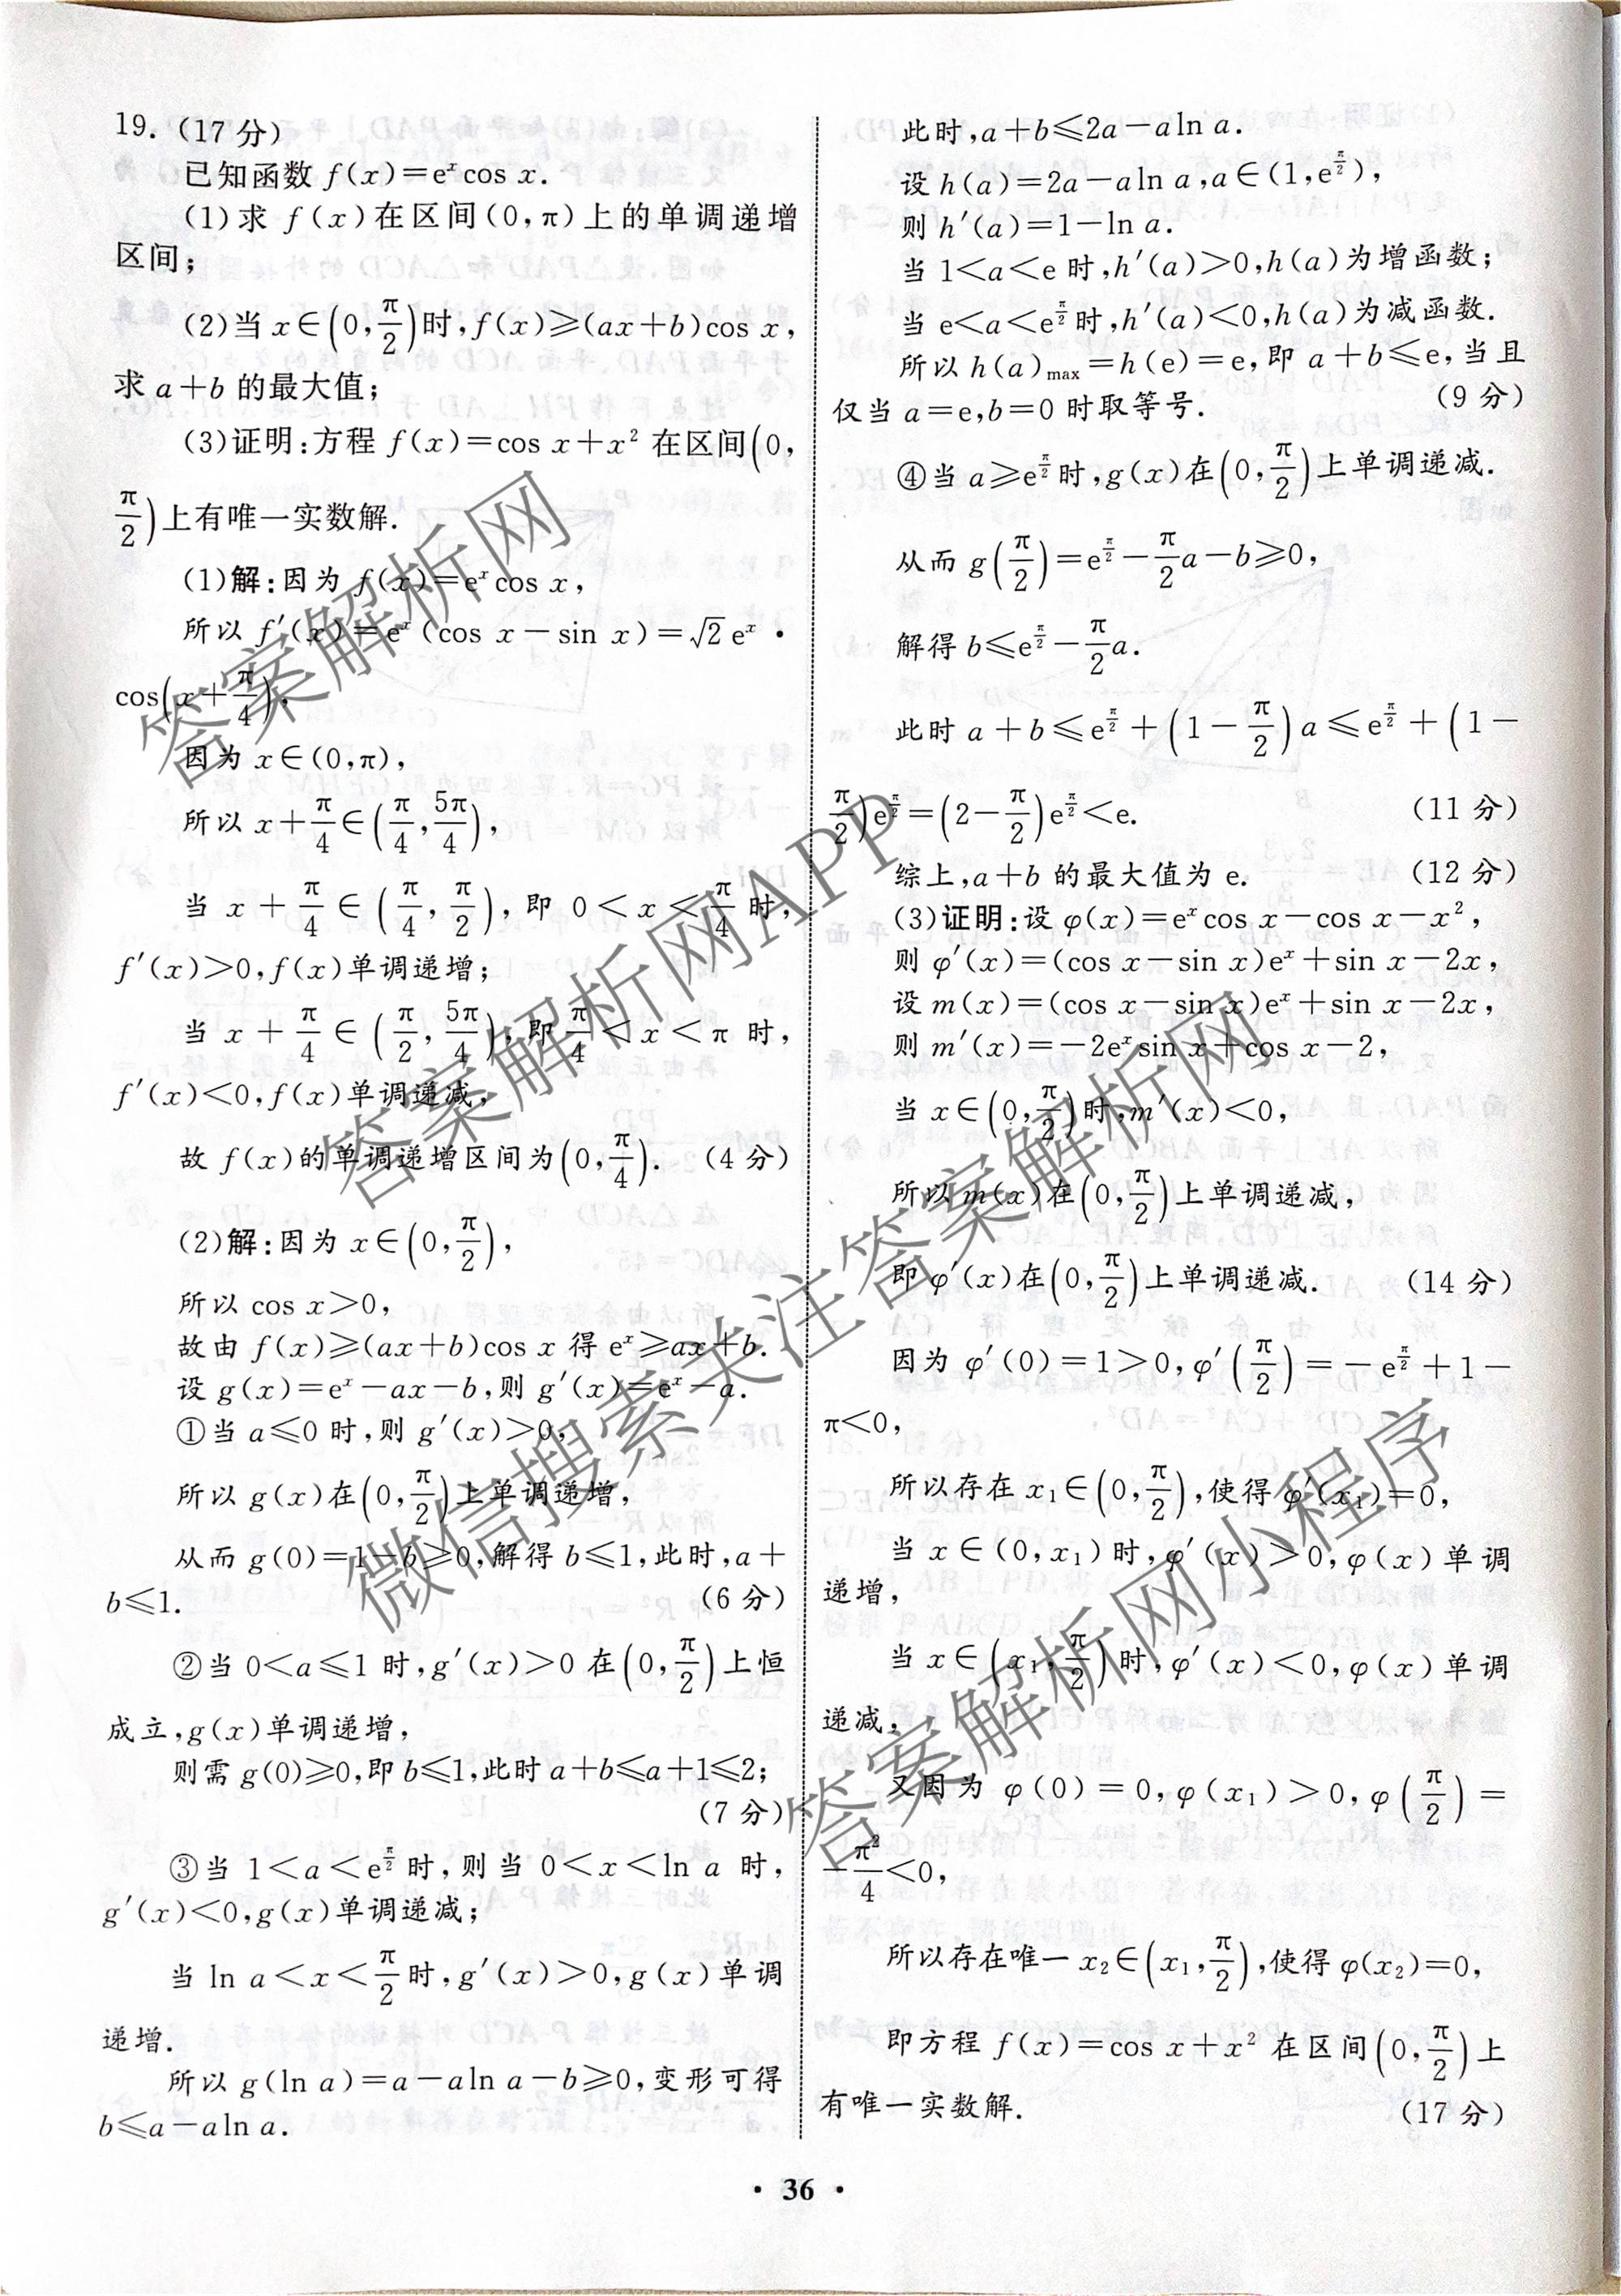 19.(17分)
已知函数 f(x)=eˣcos x.
(1)求 f(x)在区间(0,π)上的单调递增
区间;
(2)当 x∈(0,π/2)时,f(x)≥(ax+b)cos x,
求 a+b 的最大值;
(3)证明:方程 f(x)=cos x+x² 在区间(0,
π/2)上有唯一实数解.
(1)解:因为 f(x)=eˣcos x,
所以 f′(x)=eˣ(cos x-sin x)=√2 eˣ·
cos(x+π/4),
因为 x∈(0,π),
所以 x+π/4∈(π/4,5π/4),
当 x+π/4∈(π/4,π/2),即 0<x<π/4时,
f′(x)>0,f(x)单调递增;
当 x+π/4∈(π/2,5π/4),即π/4<x<π 时,
f′(x)<0,f(x)单调递减,
故 f(x)的单调递增区间为(0,π/4). (4分)
(2)解:因为 x∈(0,π/2),
所以 cos x>0,
故由 f(x)≥(ax+b)cos x 得 eˣ≥ax+b.
设 g(x)=eˣ-ax-b,则 g′(x)=eˣ-a.
①当 a≤0 时,则 g′(x)>0,
所以 g(x)在(0,π/2)上单调递增,
从而 g(0)=1-b≥0,解得 b≤1,此时,a+
b≤1. (6分)
②当 0<a≤1 时,g′(x)>0 在(0,π/2)上恒
成立,g(x)单调递增,
则需 g(0)≥0,即 b≤1,此时 a+b≤a+1≤2;
(7分)
③当 1<a<e^(π/2) 时,则当 0<x<ln a 时,
g′(x)<0,g(x)单调递减;
当 ln a<x<π/2时,g′(x)>0,g(x)单调
递增.
所以 g(ln a)=a-aln a-b≥0,变形可得
b≤a-aln a.
此时,a+b≤2a-aln a.
设 h(a)=2a-aln a,a∈(1,e^(π/2)),
则 h′(a)=1-ln a.
当 1<a<e 时,h′(a)>0,h(a)为增函数;
当 e<a<e^(π/2)时,h′(a)<0,h(a)为减函数.
所以 h(a)max=h(e)=e,即 a+b≤e,当且
仅当 a=e,b=0 时取等号. (9分)
④当 a≥e^(π/2)时,g(x)在(0,π/2)上单调递减.
从而 g(π/2)=e^(π/2)-π/2a-b≥0,
解得 b≤e^(π/2)-π/2a.
此时 a+b≤e^(π/2)+(1-π/2)a≤e^(π/2)+(1-
π/2)e^(π/2)=(2-π/2)e^(π/2)<e. (11分)
综上,a+b 的最大值为 e. (12分)
(3)证明:设 φ(x)=eˣcos x-cos x-x²,
则 φ′(x)=(cos x-sin x)eˣ+sin x-2x,
设 m(x)=(cos x-sin x)eˣ+sin x-2x,
则 m′(x)=-2eˣsin x+cos x-2,
当 x∈(0,π/2)时,m′(x)<0,
所以 m(x)在(0,π/2)上单调递减,
即 φ′(x)在(0,π/2)上单调递减. (14分)
因为 φ′(0)=1>0,φ′(π/2)=-e^(π/2)+1-
π<0,
所以存在 x₁∈(0,π/2),使得 φ′(x₁)=0,
当 x∈(0,x₁)时,φ′(x)>0,φ(x)单调
递增,
当 x∈(x₁,π/2)时,φ′(x)<0,φ(x)单调
递减,
又因为 φ(0)=0,φ(x₁)>0,φ(π/2)=
-π²/4<0,
所以存在唯一 x₂∈(x₁,π/2),使得 φ(x₂)=0,
即方程 f(x)=cos x+x² 在区间(0,π/2)上
有唯一实数解. (17分)
· 36 ·
答案解析网
答案解析网APP
微信搜索关注答案解析网
答案解析网小程序